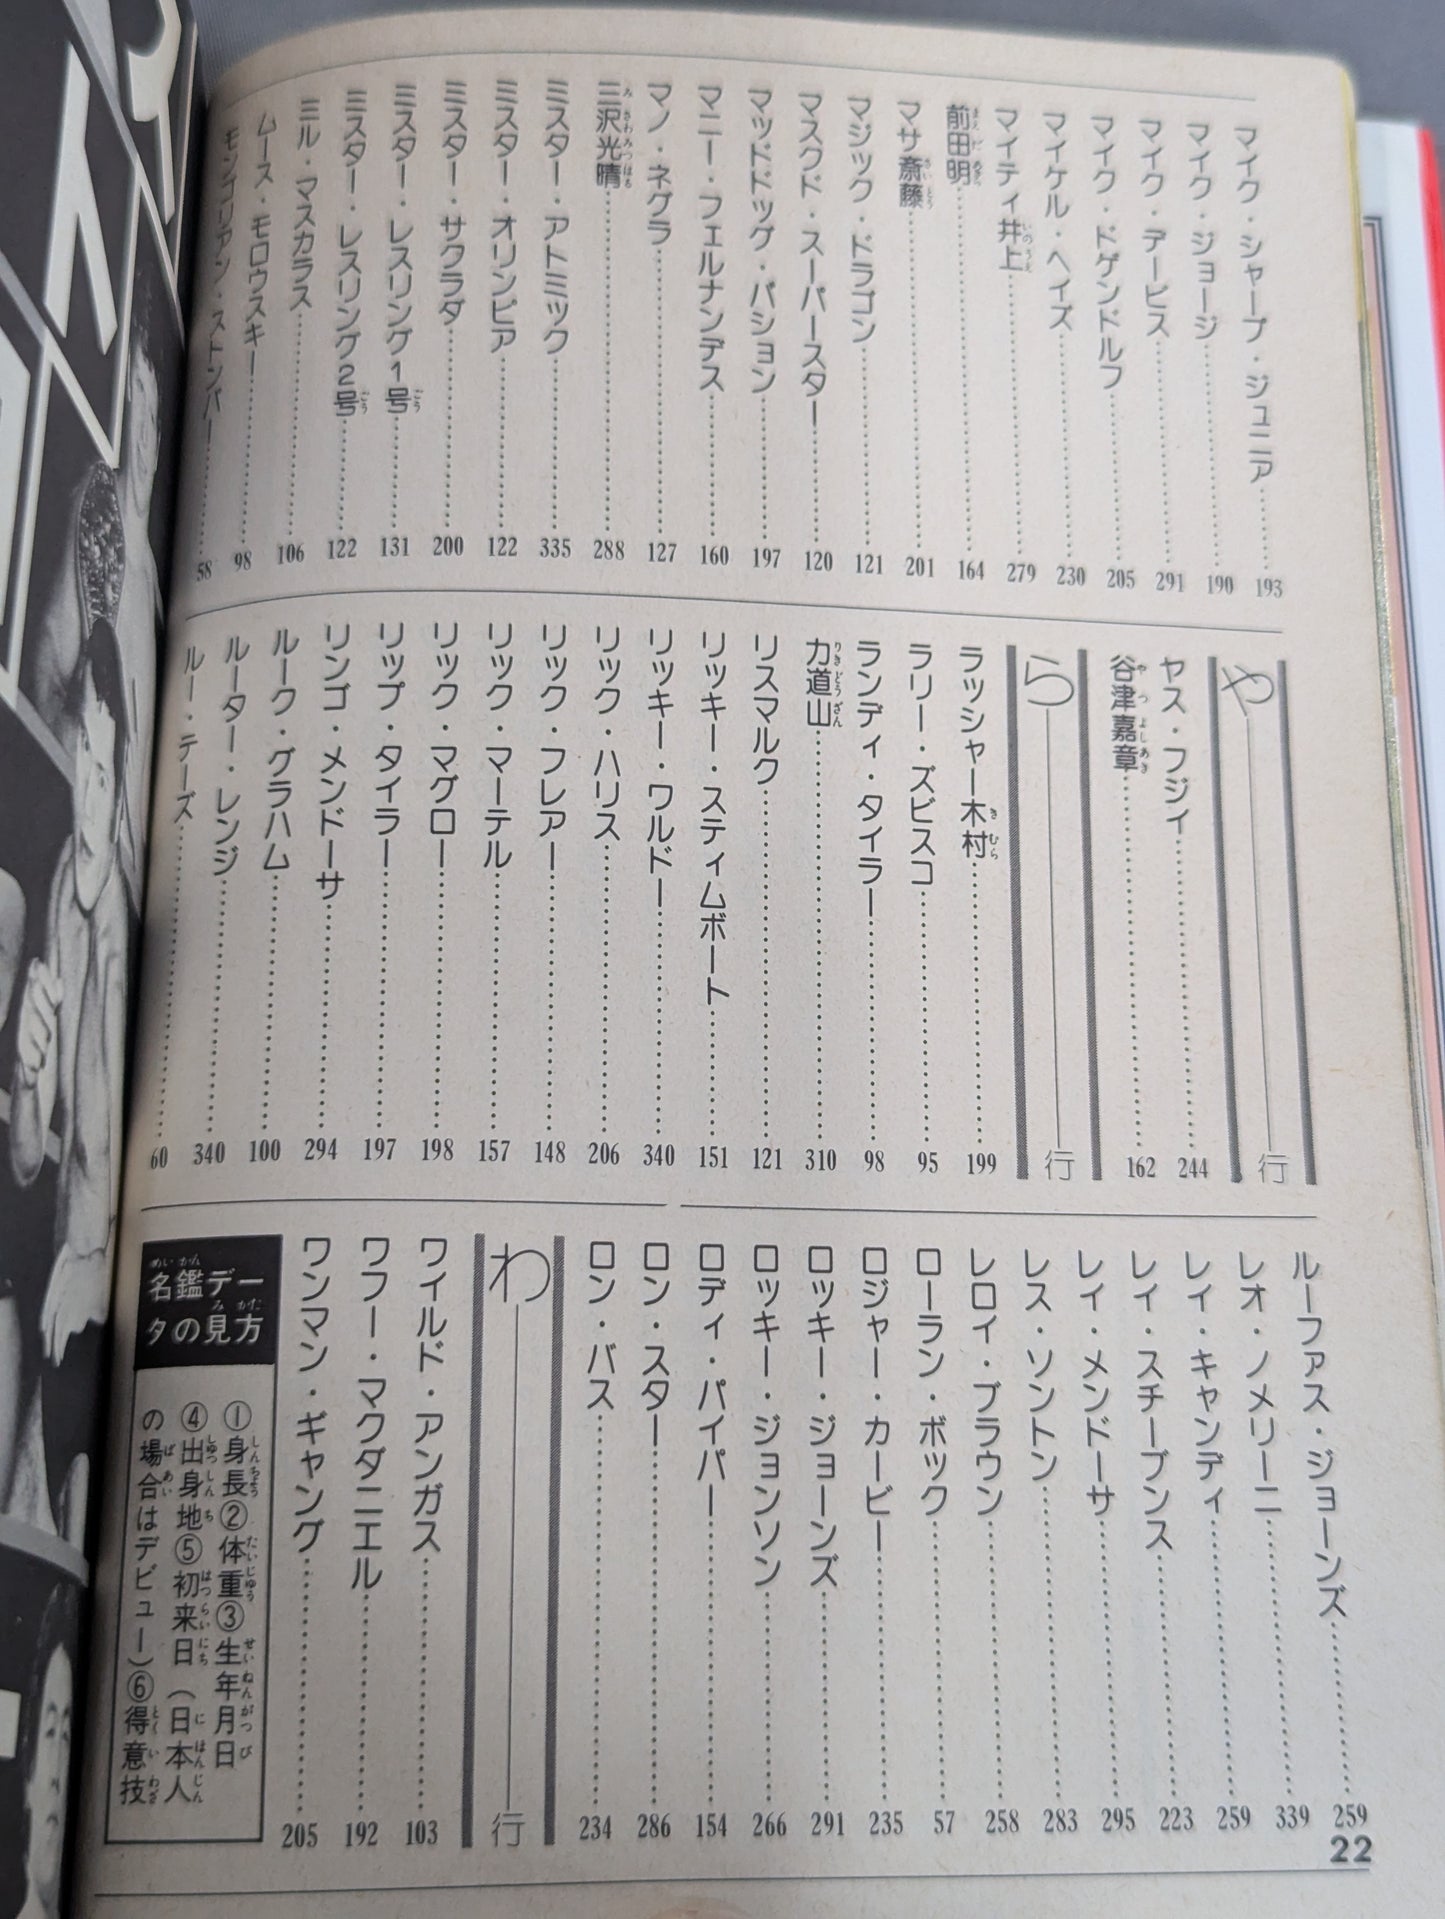 マイク・シャープ・ジュニア……193
マイク・ジョージ……190
マイク・デービス……291
マイク・ドゲンドルフ……205
マイケル・ヘイズ……230
マイティ井上……279
前田明……164
マサ斎藤……201
マジック・ドラゴン……121
マスクド・スーパースター……120
マッドドッグ・バション……197
マニー・フェルナンデス……160
マノ・ネグラ……127
三沢光晴……288
ミスター・アトミック……335
ミスター・オリンピア……122
ミスター・サクラダ……200
ミスター・レスリング1号……131
ミスター・レスリング2号……122
ミル・マスカラス……106
ムース・モロウスキー……98
モンゴリアン・ストンパー……58
や行
ヤス・フジイ……244
谷津嘉章……162
ら行
ラッシャー木村……199
ラリー・ズビスコ……95
ランディ・タイラー……98
力道山……310
リスマルク……121
リッキー・スティムボート……151
リッキー・ワルドー……340
リック・ハリス……206
リック・フレアー……148
リック・マーテル……157
リック・マグロー……198
リップ・タイラー……197
リンゴ・メンドーサ……294
ルーク・グラハム……100
ルーター・レンジ……340
ルー・テーズ……60
ルーファス・ジョーンズ……259
レオ・ノメリーニ……339
レイ・キャンディ……259
レイ・スチーブンス……223
レイ・メンドーサ……295
レス・ソントン……283
レロイ・ブラウン……258
ローラン・ボック……57
ロジャー・カービー……235
ロッキー・ジョーンズ……291
ロッキー・ジョンソン……266
ロディ・パイパー……154
ロン・スター……286
ロン・バス……234
わ行
ワイルド・アンガス……103
ワフー・マクダニエル……192
ワンマン・ギャング……205
名鑑デー
タの見方
①身長②体重③生年月日
④出身地⑤初来日(日本人
の場合はデビュー)⑥得意技
22